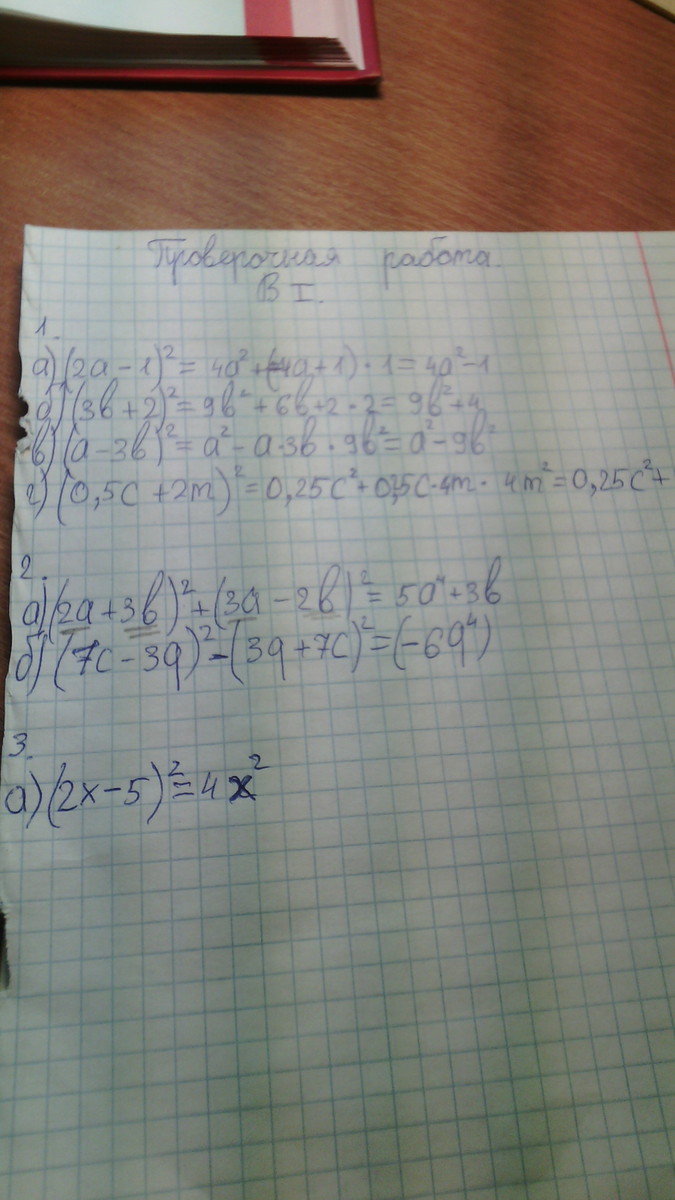 Проверочная работа.
В I.
1.
а) (2a - 1)² = 4a² + (-4a + 1) · 1 = 4a² - 1
б) (3b + 2)² = 9b² + 6b + 2 · 2 = 9b² + 4
в) (a - 3b)² = a² - a · 3b · 9b² = a² - 9b²
г) (0,5c + 2m)² = 0,25c² + 0,5c · 4m · 4m² = 0,25c² +
2.
а) (2a + 3b)² + (3a - 2b)² = 5a⁴ + 3b
б) (7c - 3q)² - (3q + 7c)² = (-6q⁴)
3.
а) (2x - 5)² = 4x²